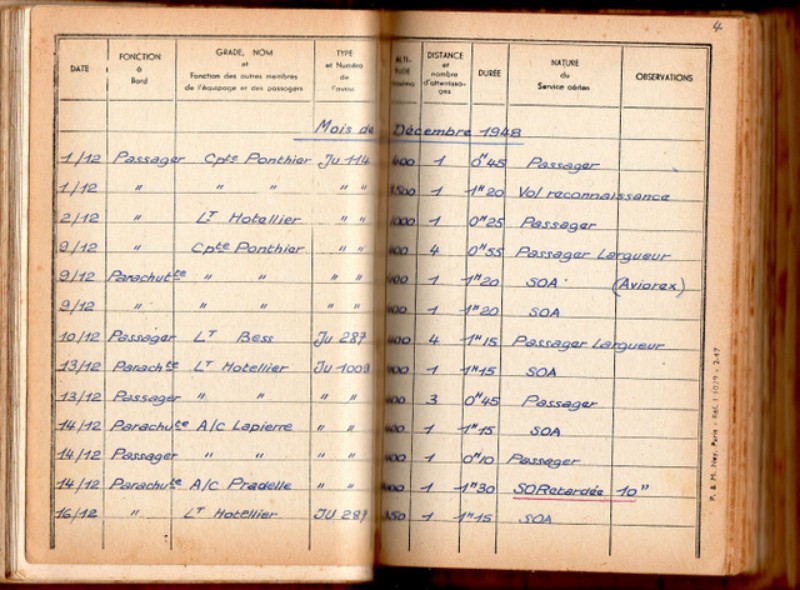 4
DATE FONCTION à Bord GRADE, NOM et Fonction des autres membres de l'équipage et des passagers TYPE et Numéro de l'avion DISTANCE et nombre d'atterrissages DURÉE NATURE du Service aérien OBSERVATIONS
Mois de Décembre 1948
1/12 Passager Cpte Ponthier Ju 114 400 1 0H45 Passager
1/12 " " " " " 1500 1 1H20 Vol reconnaissance
2/12 " LT Hotellier " " 1000 1 0H25 Passager
9/12 " Cpte Ponthier " " 400 4 0H55 Passager Largueur
9/12 Parachutte " " " " 400 1 1H20 SOA (Aviorex)
9/12 " " " " " 400 1 1H20 SOA
10/12 Passager LT Bess Ju 287 400 4 1H15 Passager Largueur
13/12 Parachte LT Hotellier Ju 1009 400 1 1H15 SOA
13/12 Passager " " " " 400 3 0H45 Passager
14/12 Parachute A/C Lapierre " " 400 1 1H15 SOA
14/12 Passager " " " " 400 1 0H10 Passager
14/12 Parachute A/C Pradelle " " 1 1H30 SORetardée 10"
16/12 " LT Hotellier JU 287 350 1 1H15 SOA
P. & M. Ney, Paris